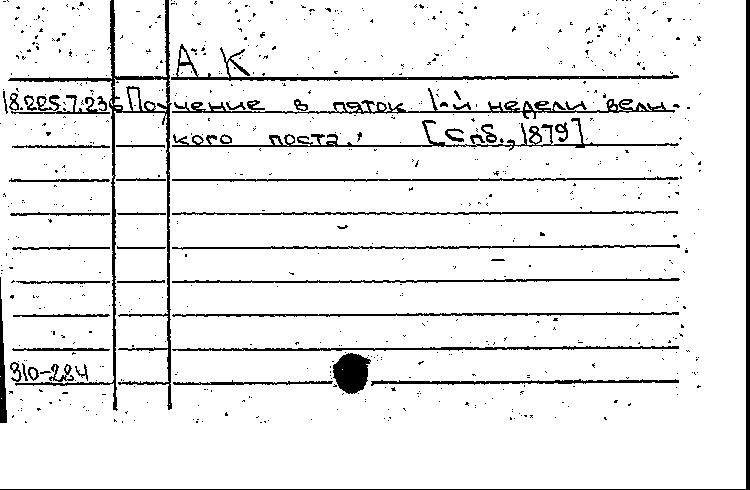 А. К.
18.225.7.236 Поучение в пяток 1-й недели вели-
кого поста. [Спб., 1879]
310-284